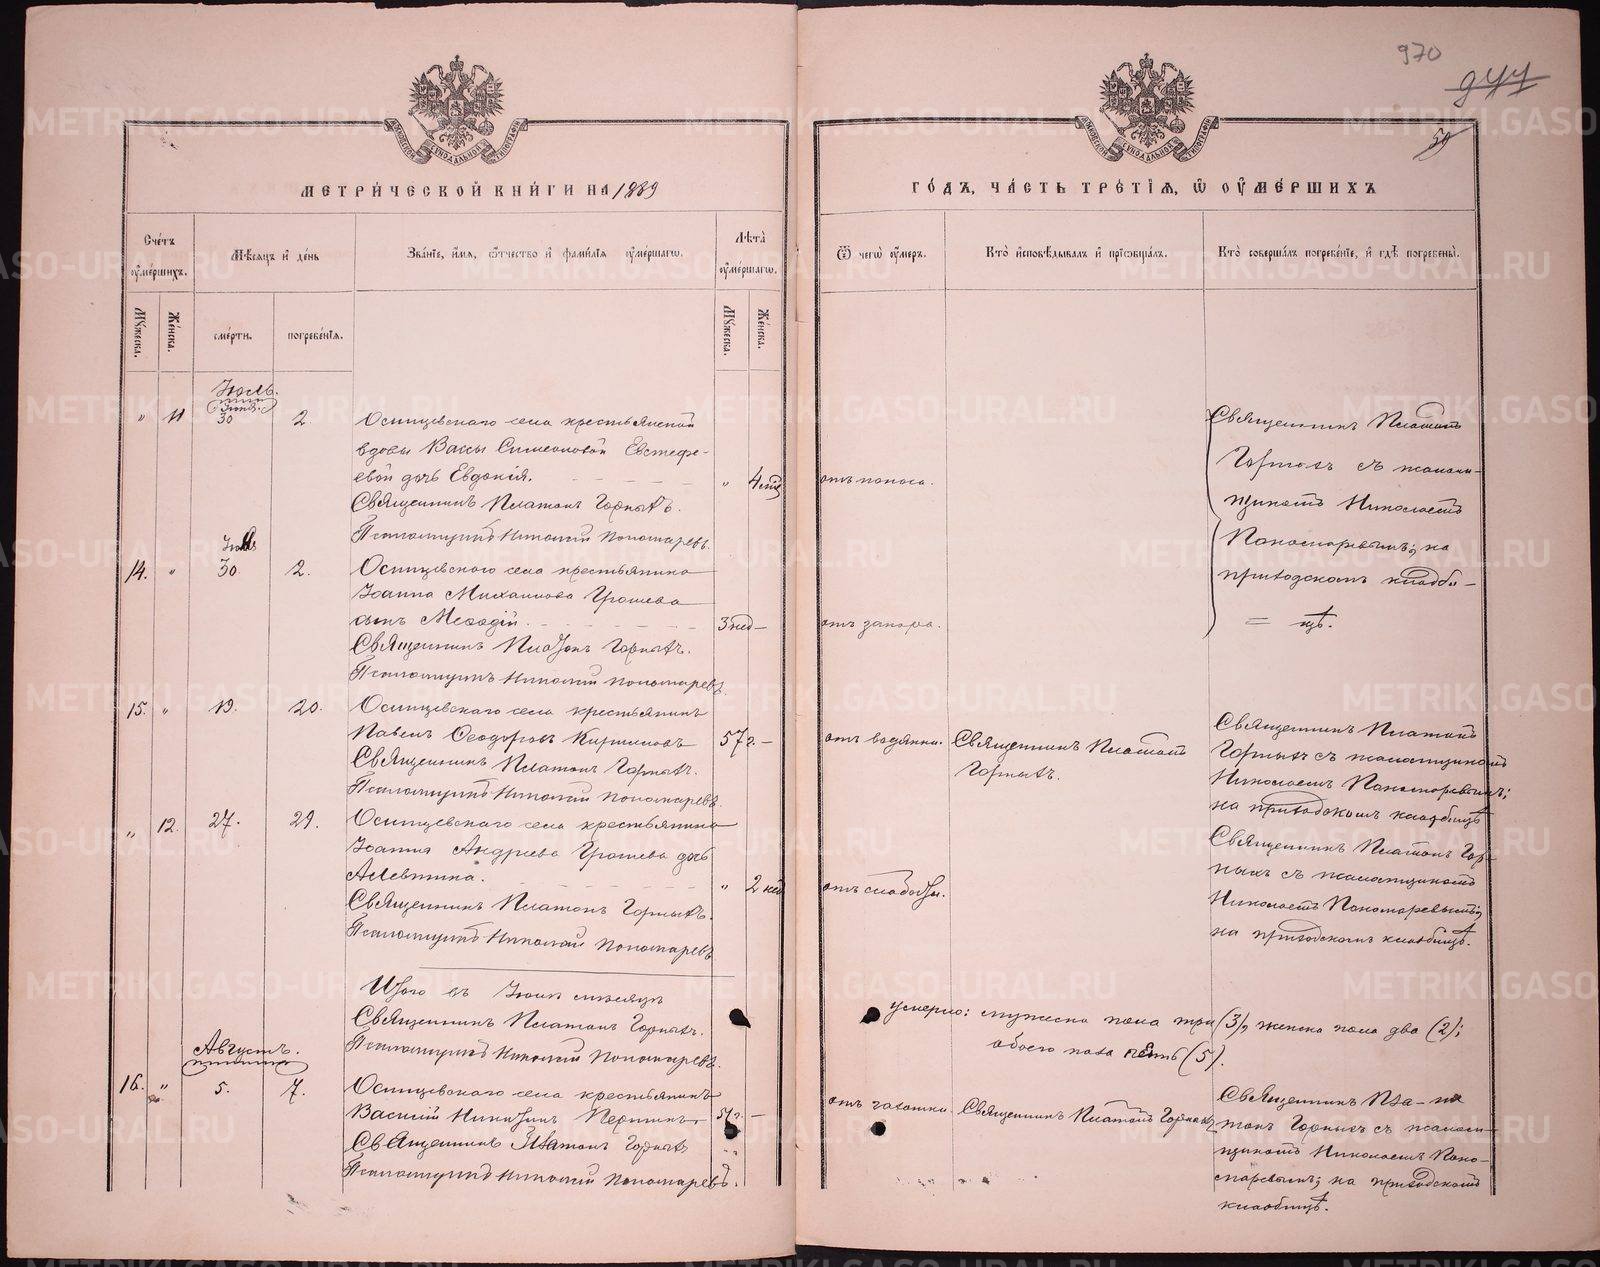 970
944
50
МЕТРИЧЕСКОЙ КНИГИ НА 1889
Счетъ умершихъ.
Мѣсяцъ и день
Званіе, имя, отчество и фамилія умершагѡ.
Лѣта умершагѡ.
Мужеска.
Женска.
смерти.
погребенія.
Мужеска.
Женска.
Іюль.
" 11 30 2.
Осинцевскаго села крестьянской
вдовы Вассы Симеоновой Евстефе-
евой дочь Евдокія. " 4
Священникъ Платонъ Горныхъ.
Псаломщикъ Николай Пономаревъ.
14. " 30. 2.
Осинцевскаго села крестьянина
Іоанна Михаилова Грошева
сынъ Меѳодій. 3 нед —
Священникъ Платонъ Горныхъ.
Псаломщикъ Николай Пономаревъ.
15. " 19. 20.
Осинцевскаго села крестьянинъ
Павелъ Ѳеодоровъ Кирилловъ 57 г. —
Священникъ Платонъ Горныхъ.
Псаломщикъ Николай Пономаревъ.
" 12. 27. 29.
Осинцевскаго села крестьянина
Іоанна Андреева Грошева дочь
Алевтина. " 2 нед
Священникъ Платонъ Горныхъ.
Псаломщикъ Николай Пономаревъ.
Итого въ Іюлѣ мѣсяцѣ
Священникъ Платонъ Горныхъ.
Псаломщикъ Николай Пономаревъ.
Августъ.
16. " 5. 7.
Осинцевскаго села крестьянинъ
Василій Никитинъ 51 г. —
Священникъ Платонъ Горныхъ
Псаломщикъ Николай Пономаревъ.
ГОДЪ, ЧАСТЬ ТРЕТІЯ, Ѡ УМЕРШИХЪ
Ѿ чегѡ умеръ.
Кто исповѣдывалъ и пріобщалъ.
Кто совершалъ погребеніе, и гдѣ погребены.
отъ поноса.
Священникъ Платонъ
Горныхъ съ псалом-
щикомъ Николаемъ
Пономаревымъ; на
приходскомъ кладби-
= щѣ.
отъ запора.
отъ водянки.
Священникъ Платонъ
Горныхъ.
Священникъ Платонъ
Горныхъ съ псаломщикомъ
Николаемъ Пономаревымъ;
на приходскомъ кладбищѣ
отъ слабости.
Священникъ Платонъ Гор-
ныхъ съ псаломщикомъ
Николаемъ Пономаревымъ;
на приходскомъ кладбищѣ.
умерло: мужеска пола три (3), женска пола два (2);
обоего пола пять (5).
отъ чахотки.
Священникъ Платонъ Горныхъ
Священникъ Пла-
тонъ Горныхъ съ псалом-
щикомъ Николаемъ Поно-
маревымъ; на приходскомъ
кладбищѣ.
METRIKI.GASO-URAL.RU